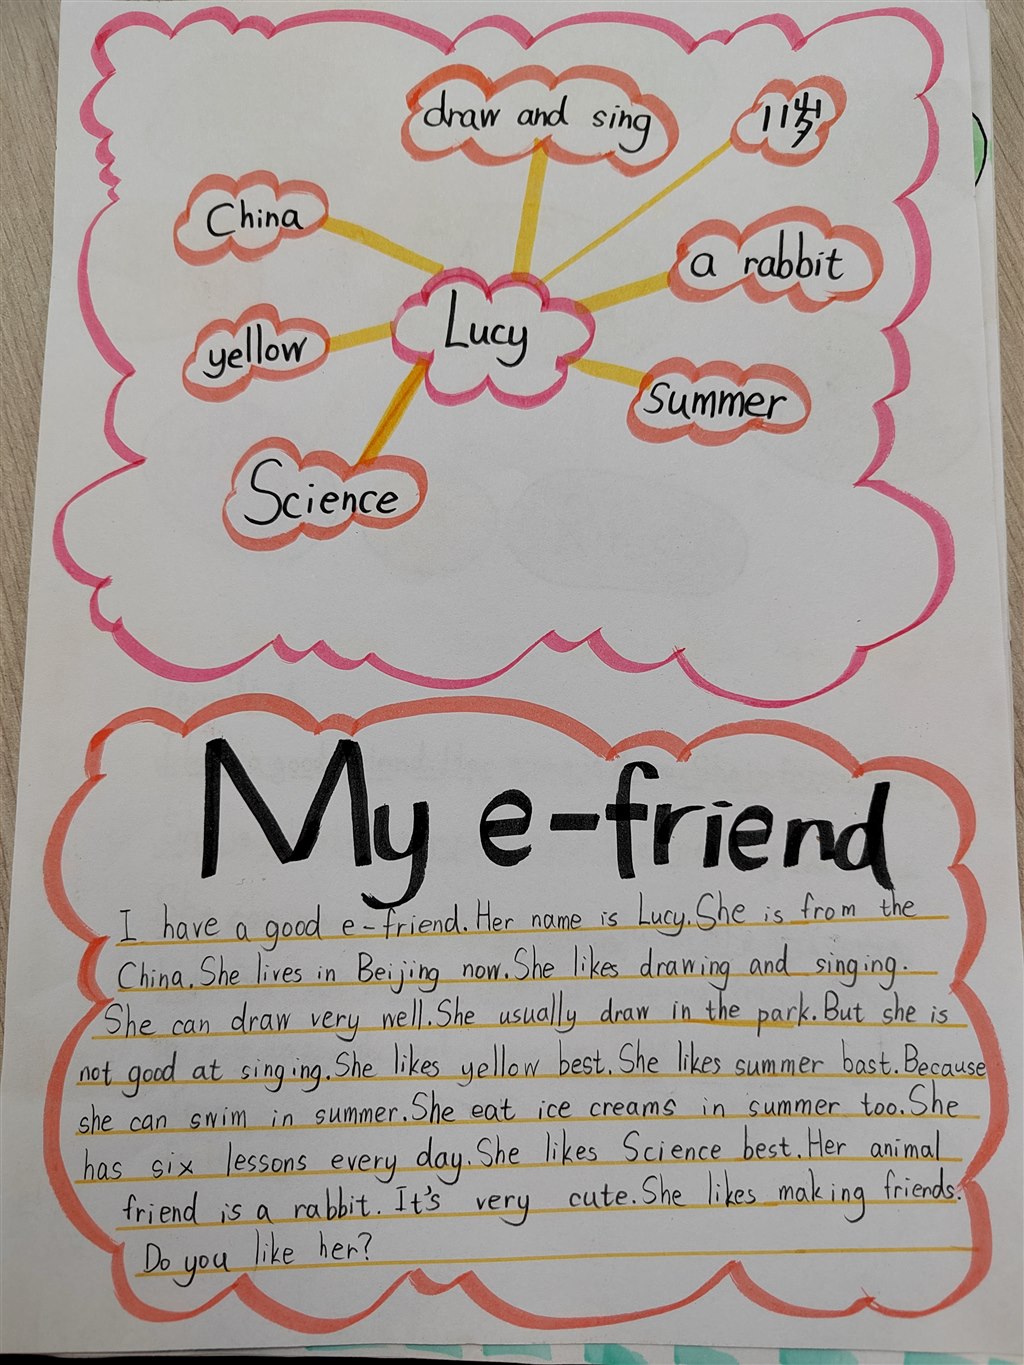 draw and sing
11岁
China
a rabbit
Lucy
yellow
summer
Science
My e-friend
I have a good e-friend. Her name is Lucy. She is from the
China. She lives in Beijing now. She likes drawing and singing.
She can draw very well. She usually draw in the park. But she is
not good at singing. She likes yellow best. She likes summer bast. Because
she can swim in summer. She eat ice creams in summer too. She
has six lessons every day. She likes Science best. Her animal
friend is a rabbit. It's very cute. She likes making friends.
Do you like her?